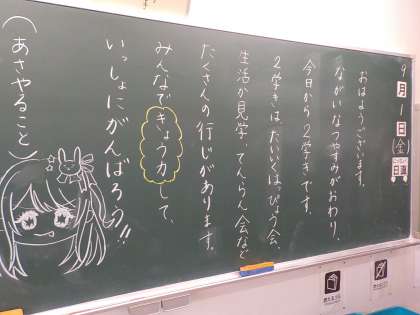 9月1日(金)
日直
おはようございます。
ながいなつやすみがおわり、
今日から2学きです。
2学きは、たいいくはっぴょう会、
生活か見学、てんらん会など
たくさんの行じがあります。
みんなできょう力して、
いっしょにがんばろう!!
(あさやること)